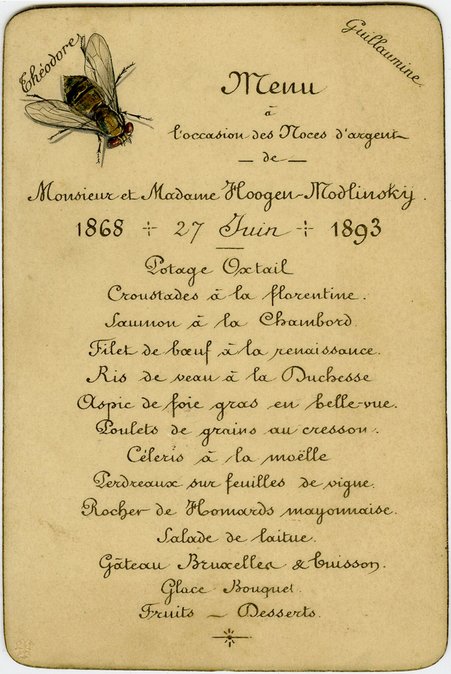 Théodore
Guillaumine
Menu
à
l'occasion des Noces d'argent
— de —
Monsieur et Madame Hoogen-Modlinsky.
1868 ÷ 27 Juin ÷ 1893
Potage Oxtail
Croustades à la florentine.
Saumon à la Chambord.
Filet de bœuf à la renaissance.
Ris de veau à la Duchesse
Aspic de foie gras en belle-vue.
Poulets de grains au cresson.
Céleris à la moëlle
Perdreaux sur feuilles de vigne.
Rocher de Homards mayonnaise.
Salade de laitue.
Gâteau Bruxelles & buisson.
Glace Bouquet.
Fruits — Desserts.